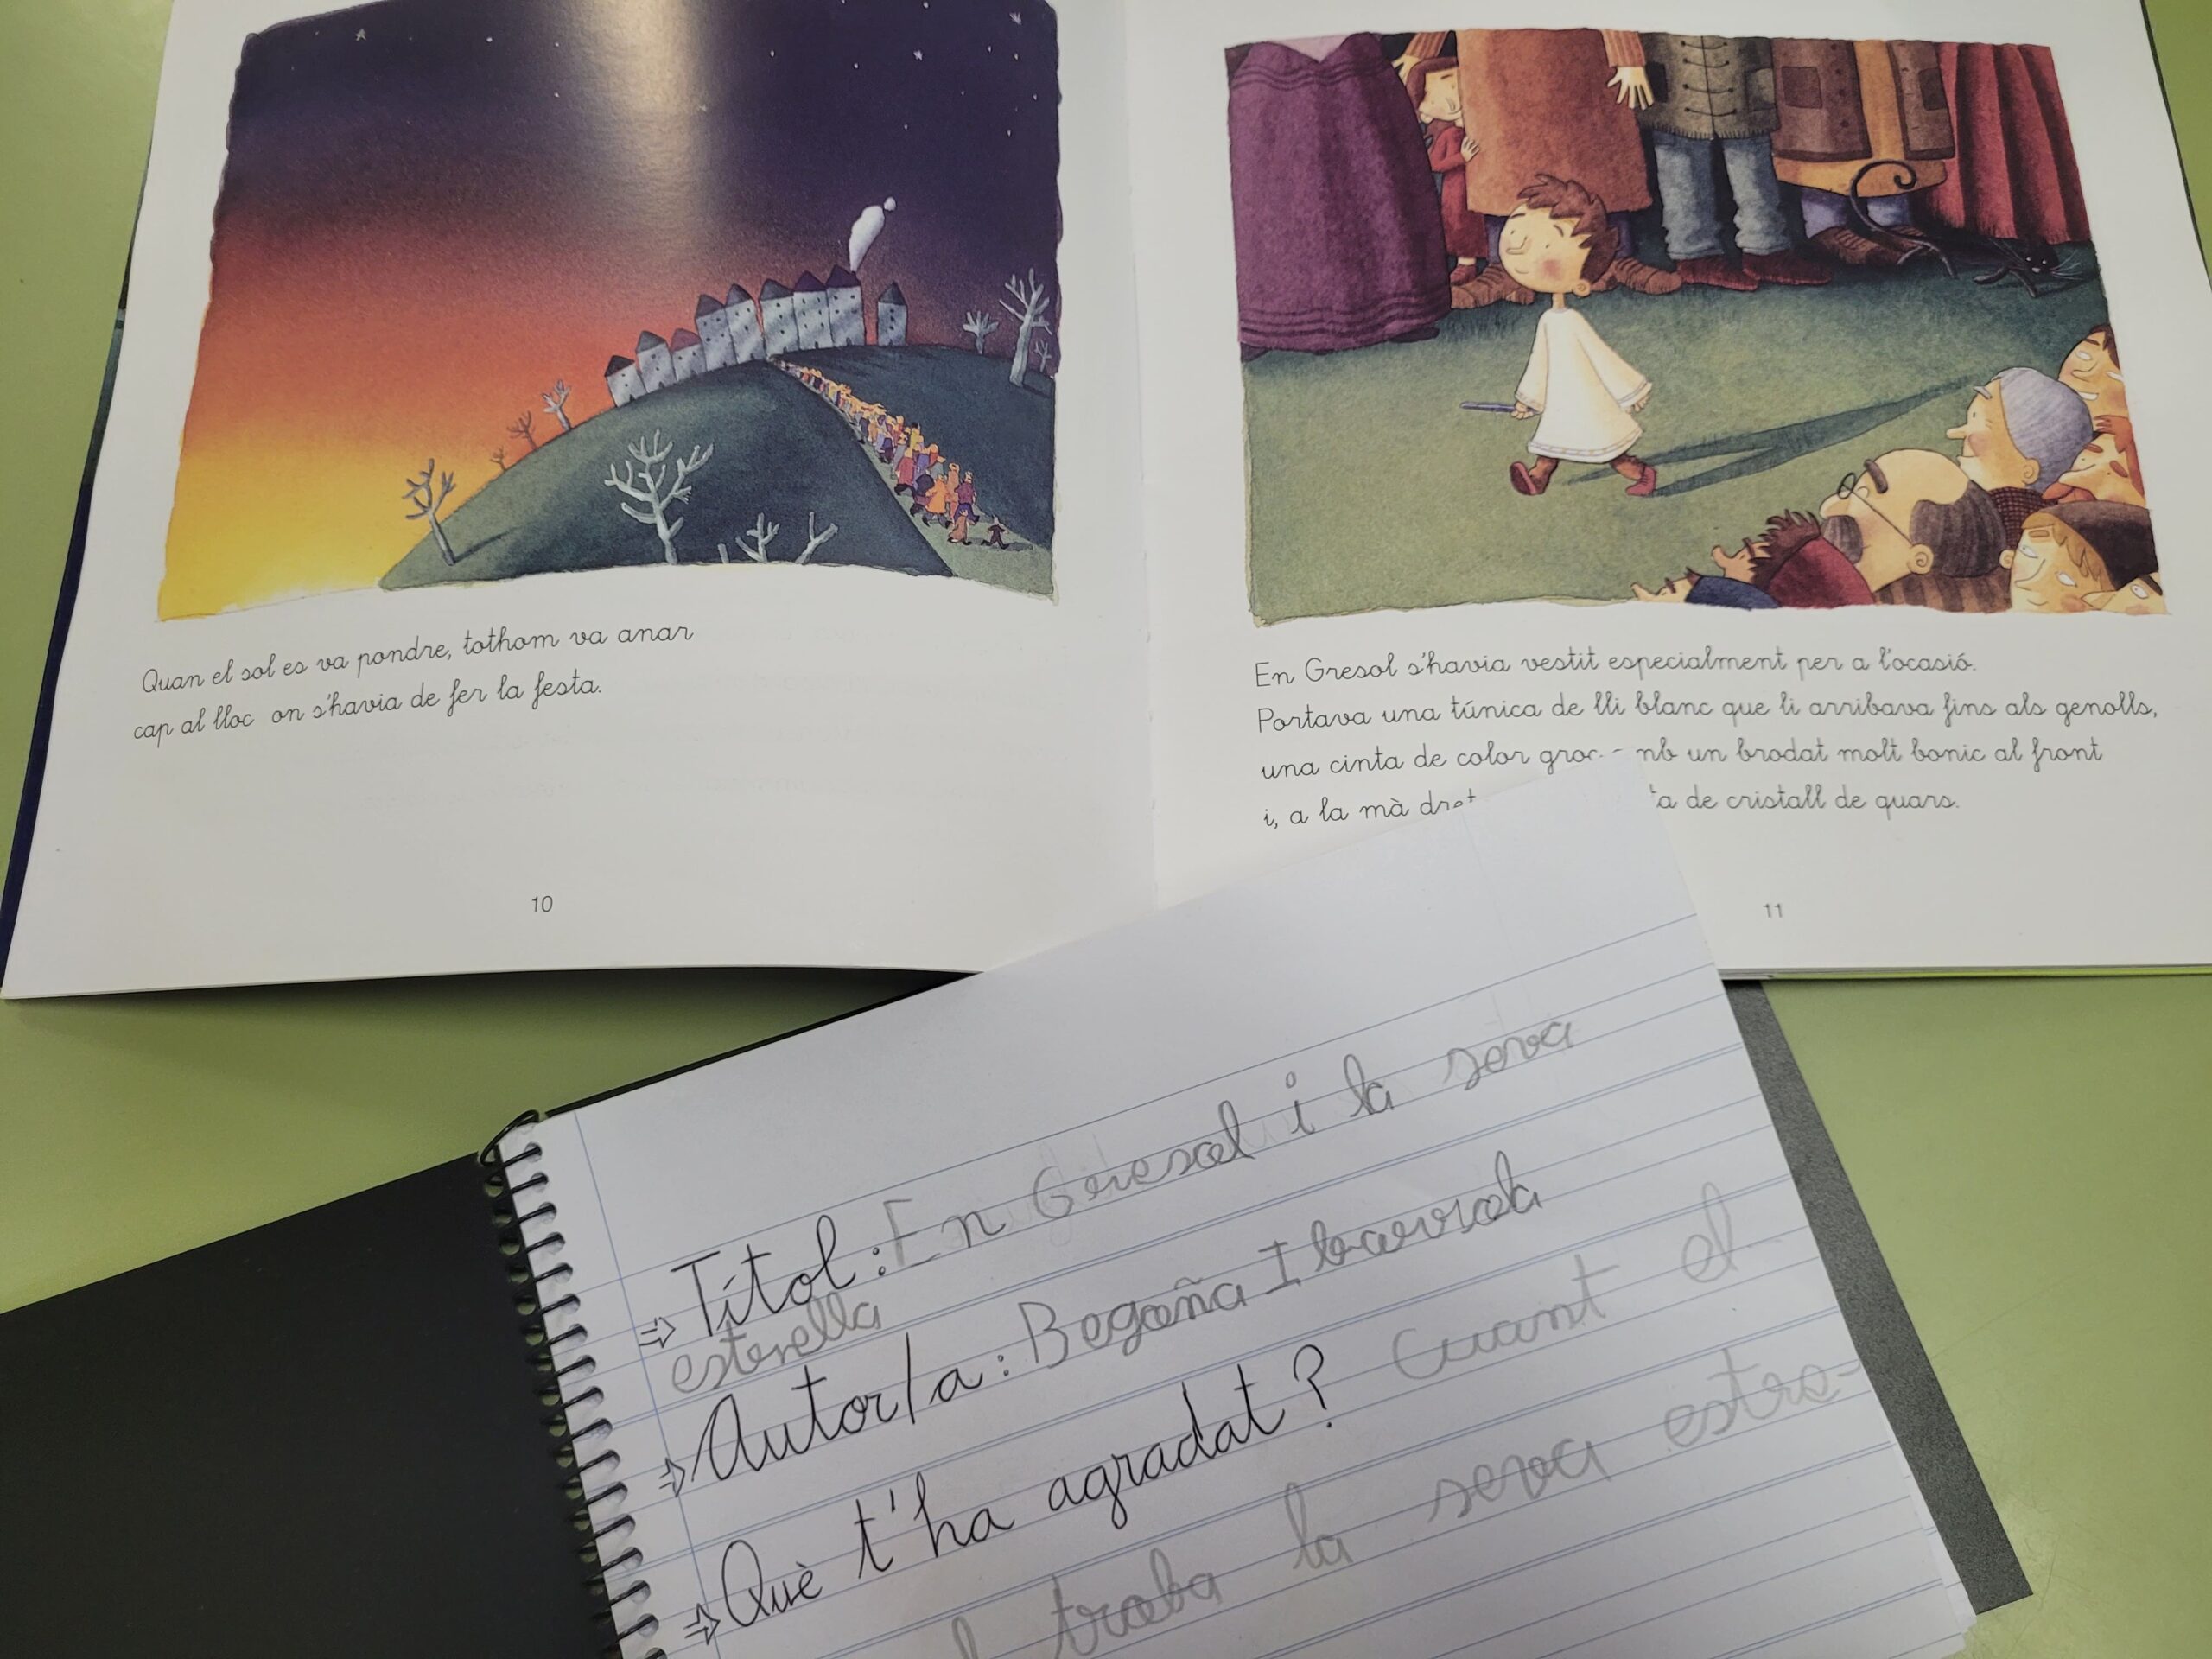 Quan el sol es va pondre, tothom va anar
cap al lloc on s'havia de fer la festa.
10
En Gresol s'havia vestit especialment per a l'ocasió.
Portava una túnica de lli blanc que li arribava fins als genolls,
una cinta de color groc amb un brodat molt bonic al front
i, a la mà de cristall de quars.
11
Títol: En Gresol i la seva
estrella
Autor/a: Begoña Ibarrola
Què t'ha agradat? Cuant el
troba la seva estre-